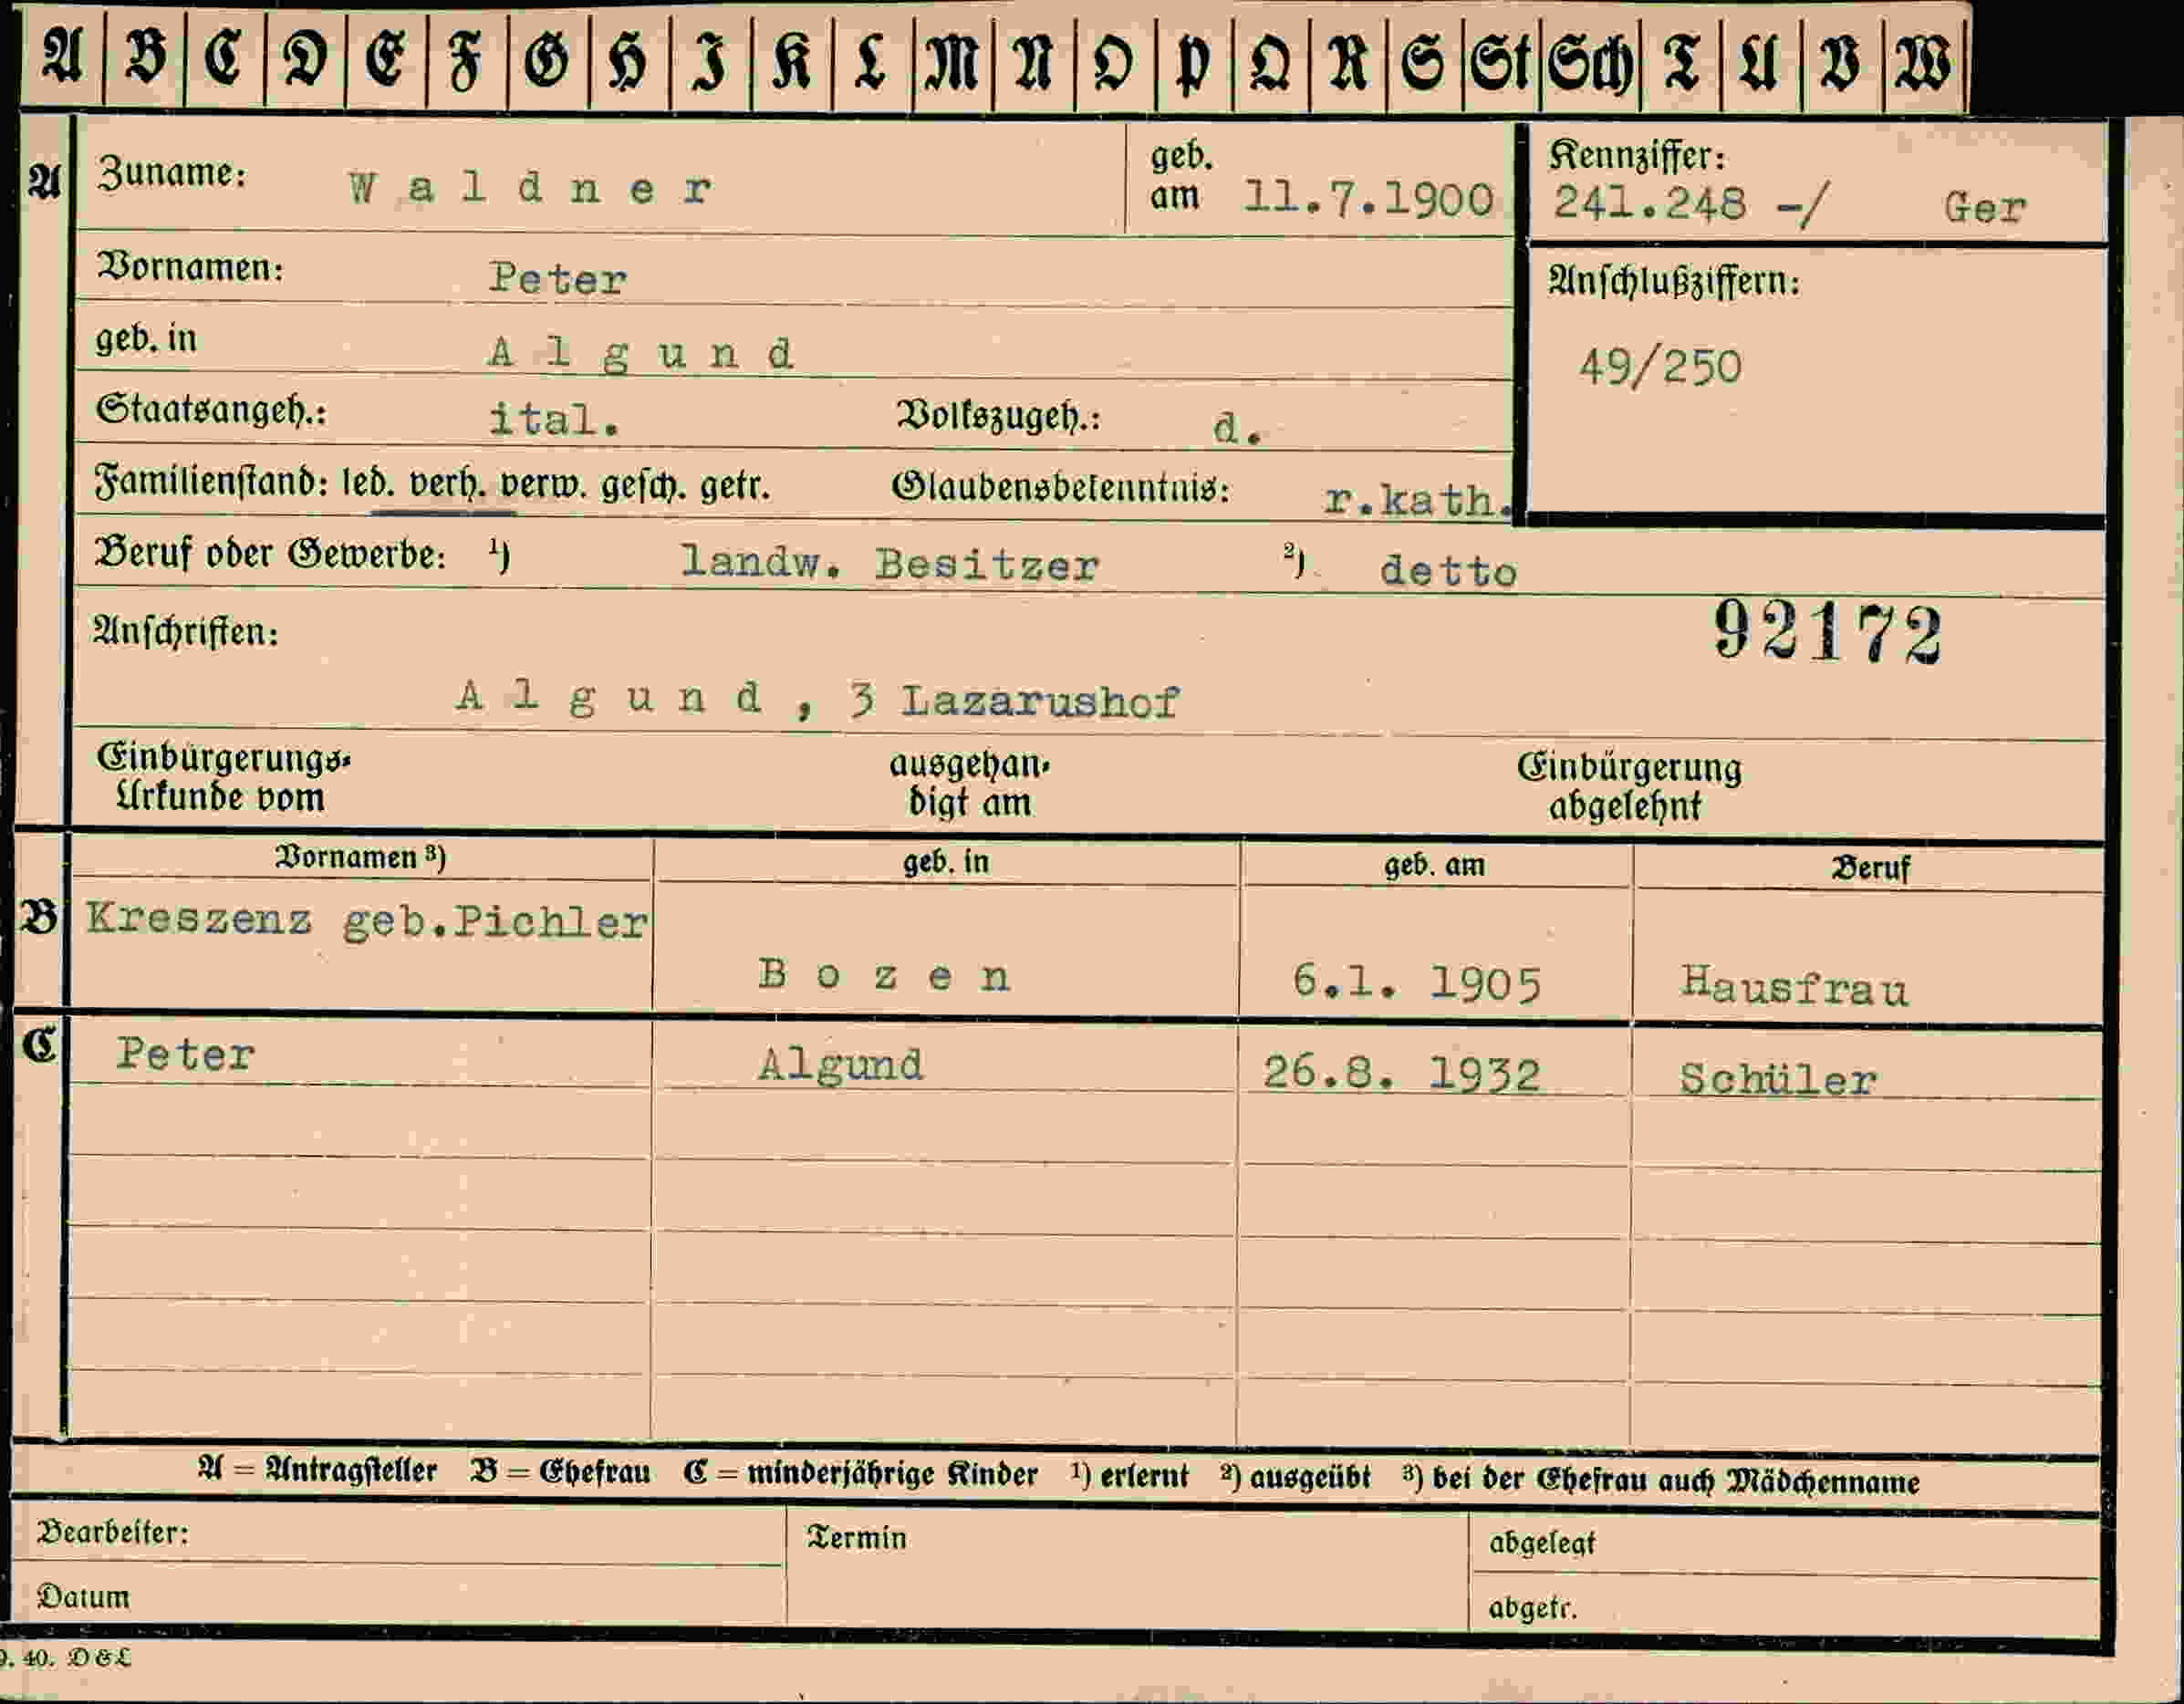 A B C D E F G H I K L M N O P Q R S St Sch T U V W
A Zuname: Waldner geb. am 11.7.1900 Kennziffer: 241.248 -/ Ger
Vornamen: Peter Anschlußziffern:
geb. in Algund 49/250
Staatsangeh.: ital. Volkszugeh.: d.
Familienstand: led. verh. verw. gesch. getr. Glaubensbekenntnis: r.kath.
Beruf oder Gewerbe: ¹) landw. Besitzer ²) detto
Anschriften: 92172
Algund, 3 Lazarushof
Einbürgerungs- ausgehän- Einbürgerung
Urkunde vom digt am abgelehnt
Vornamen ³) geb. in geb. am Beruf
B Kreszenz geb.Pichler
Bozen 6.1. 1905 Hausfrau
C Peter Algund 26.8. 1932 Schüler
A = Antragsteller B = Ehefrau C = minderjährige Kinder ¹) erlernt ²) ausgeübt ³) bei der Ehefrau auch Mädchenname
Bearbeiter: Termin abgelegt
Datum abgetr.
40. D&L